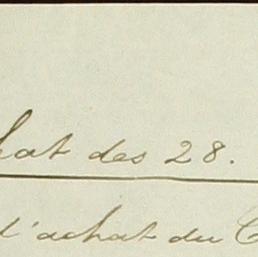 hat des 28.
d'achat du C